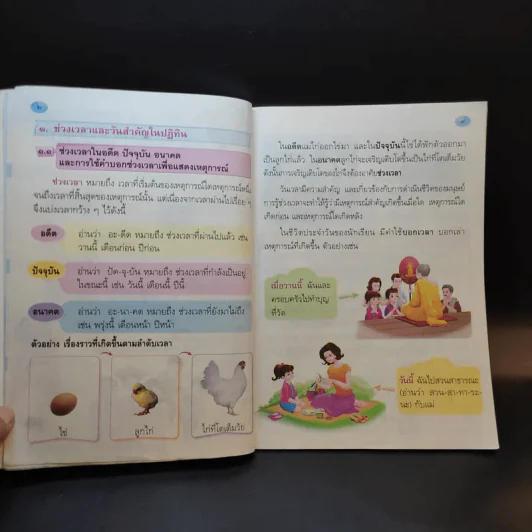 ๒
๑. ช่วงเวลาและวันสำคัญในปฏิทิน
๑.๑ ช่วงเวลาในอดีต ปัจจุบัน อนาคต
และการใช้คำบอกช่วงเวลาเพื่อแสดงเหตุการณ์
ช่วงเวลา หมายถึง เวลาที่เริ่มต้นของเหตุการณ์ใดเหตุการณ์หนึ่ง
จนถึงเวลาที่สิ้นสุดของเหตุการณ์นั้น แต่เนื่องจากเวลาผ่านไปเรื่อย ๆ
จึงแบ่งเวลากว้าง ๆ ไว้ดังนี้
อดีต
อ่านว่า อะ-ดีด หมายถึง ช่วงเวลาที่ผ่านมาแล้ว เช่น
วานนี้ เดือนก่อน ปีก่อน
ปัจจุบัน
อ่านว่า ปัด-จุ-บัน หมายถึง ช่วงเวลาที่กำลังเป็นอยู่
ในขณะนี้ เช่น วันนี้ เดือนนี้ ปีนี้
อนาคต
อ่านว่า อะ-นา-คด หมายถึง ช่วงเวลาที่ยังมาไม่ถึง
เช่น พรุ่งนี้ เดือนหน้า ปีหน้า
ตัวอย่าง เรื่องราวที่เกิดขึ้นตามลำดับเวลา
ไข่
ลูกไก่
ไก่ที่โตเต็มวัย
ในอดีตแม่ไก่ออกไข่มา และในปัจจุบันนี้ไข่ได้ฟักตัวออกมา
เป็นลูกไก่แล้ว ในอนาคตลูกไก่จะเจริญเติบโตขึ้นเป็นไก่ที่โตเต็มวัย
ดังนั้นการเจริญเติบโตของไก่จึงต้องอาศัยช่วงเวลา
วันเวลามีความสำคัญ และเกี่ยวข้องกับการดำเนินชีวิตของมนุษย์
การรู้ช่วงเวลาจะทำให้รู้ว่ามีเหตุการณ์สำคัญเกิดขึ้นเมื่อใด เหตุการณ์ใด
เกิดก่อน และเหตุการณ์ใดเกิดหลัง
ในชีวิตประจำวันของนักเรียน มีคำใช้บอกเวลา บอกเล่า
เหตุการณ์ที่เกิดขึ้น ตัวอย่างเช่น
เมื่อวานนี้ ฉันและ
ครอบครัวไปทำบุญ
ที่วัด
วันนี้ ฉันไปสวนสาธารณะ
(อ่านว่า สวน-สา-ทา-ระ-
นะ) กับแม่